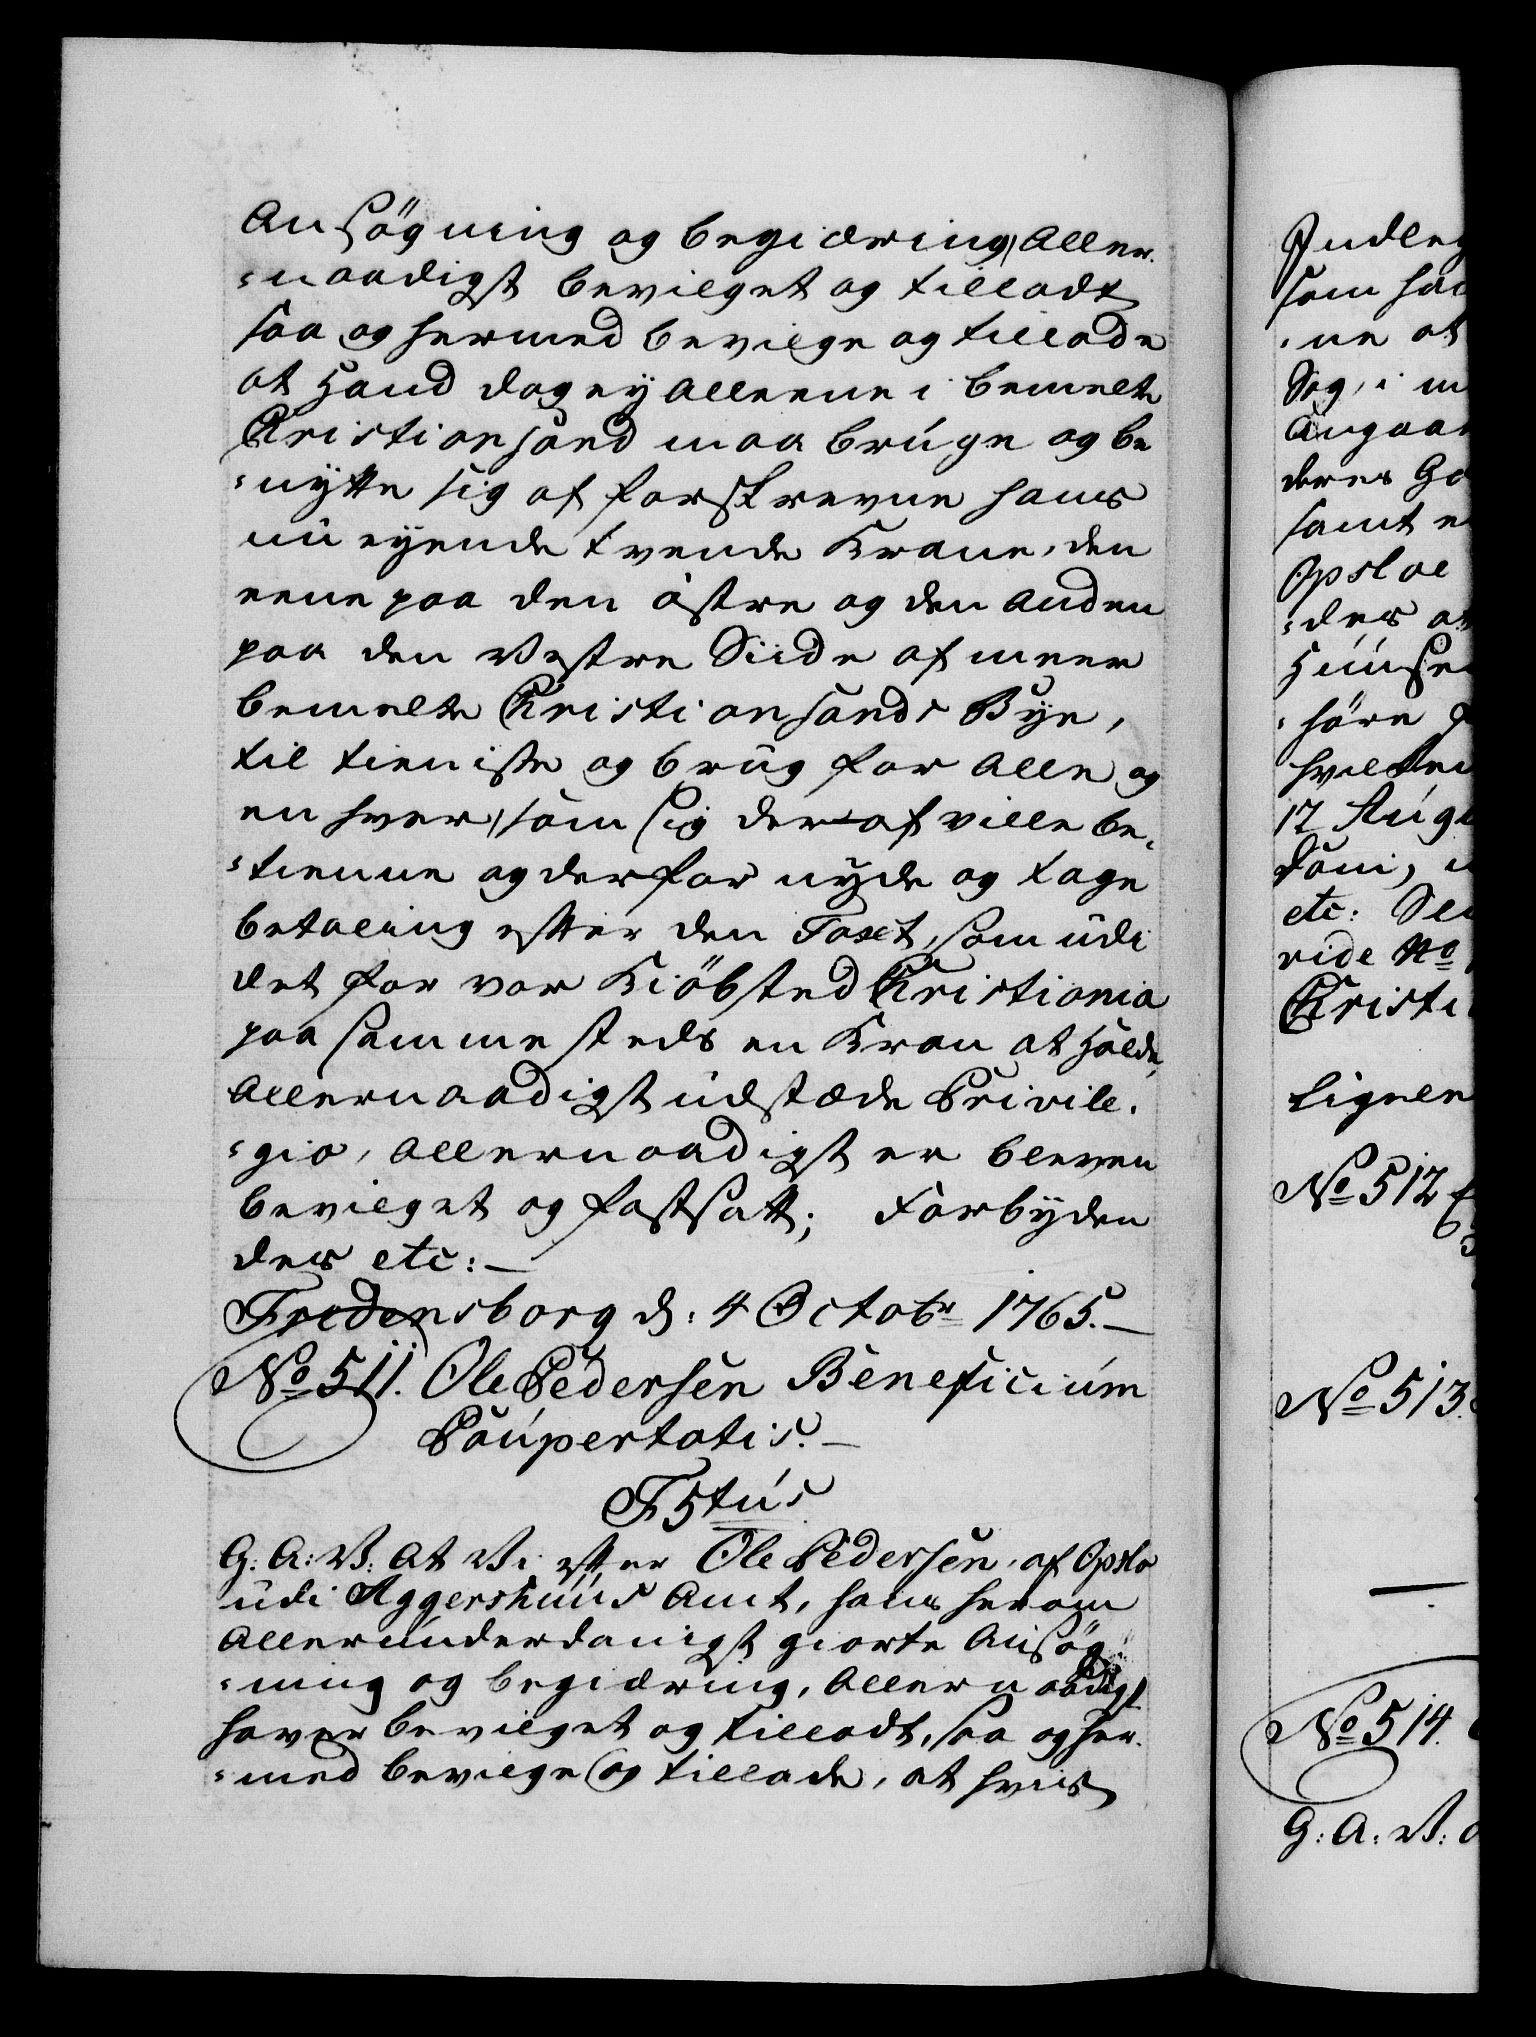 Ansögning og begiæring, Aller
=naadigst bevilget og tilladt
saa og hermed bevilge og tillade
at Hand dog ey alleene i bemelte
Christiansand maa bruge og be
=nytte sig af forskrevne hans
nu eyende tvende Krane, den
eene paa den östre og den anden
paa den Vestre Siide af meer
bemelte Christiansands Bye,
til tieniste og brug for alle og
en hver, som sig deraf ville be,
=tienne og derfor nyde og tage
betaling efter den Taxt, som udi
det for vor Kiöbsted Christiania
paa samme steds en Kran at Holde,
Allernaadigst udstæde Privile.
=gio, Allernaadigst er bleven
bevilget og fastsatt; Forbyden
des etc:—
Fredensborg d: 4 Octobr 1765.—
No 511. Ole Pedersen Beneficium
Paupertatis.—
F5tus
G: A: V: At Vi efter Ole Pedersen, af Opslo
udi Aggershuus Amt, hans herom
allerunderdanigst giorte Ansög
=ning og begiæring, Allernaadigst
haver bevilget og tilladt, saa og her.
=med bevilge og tillade, at hvis
som
=ne at
Sag, i
deres
samt
Opsloe
=des
=höre
17 Aug
etc:
ride No
Christi
Lignen
No 512
No 513.
No 514.
G: A: V: